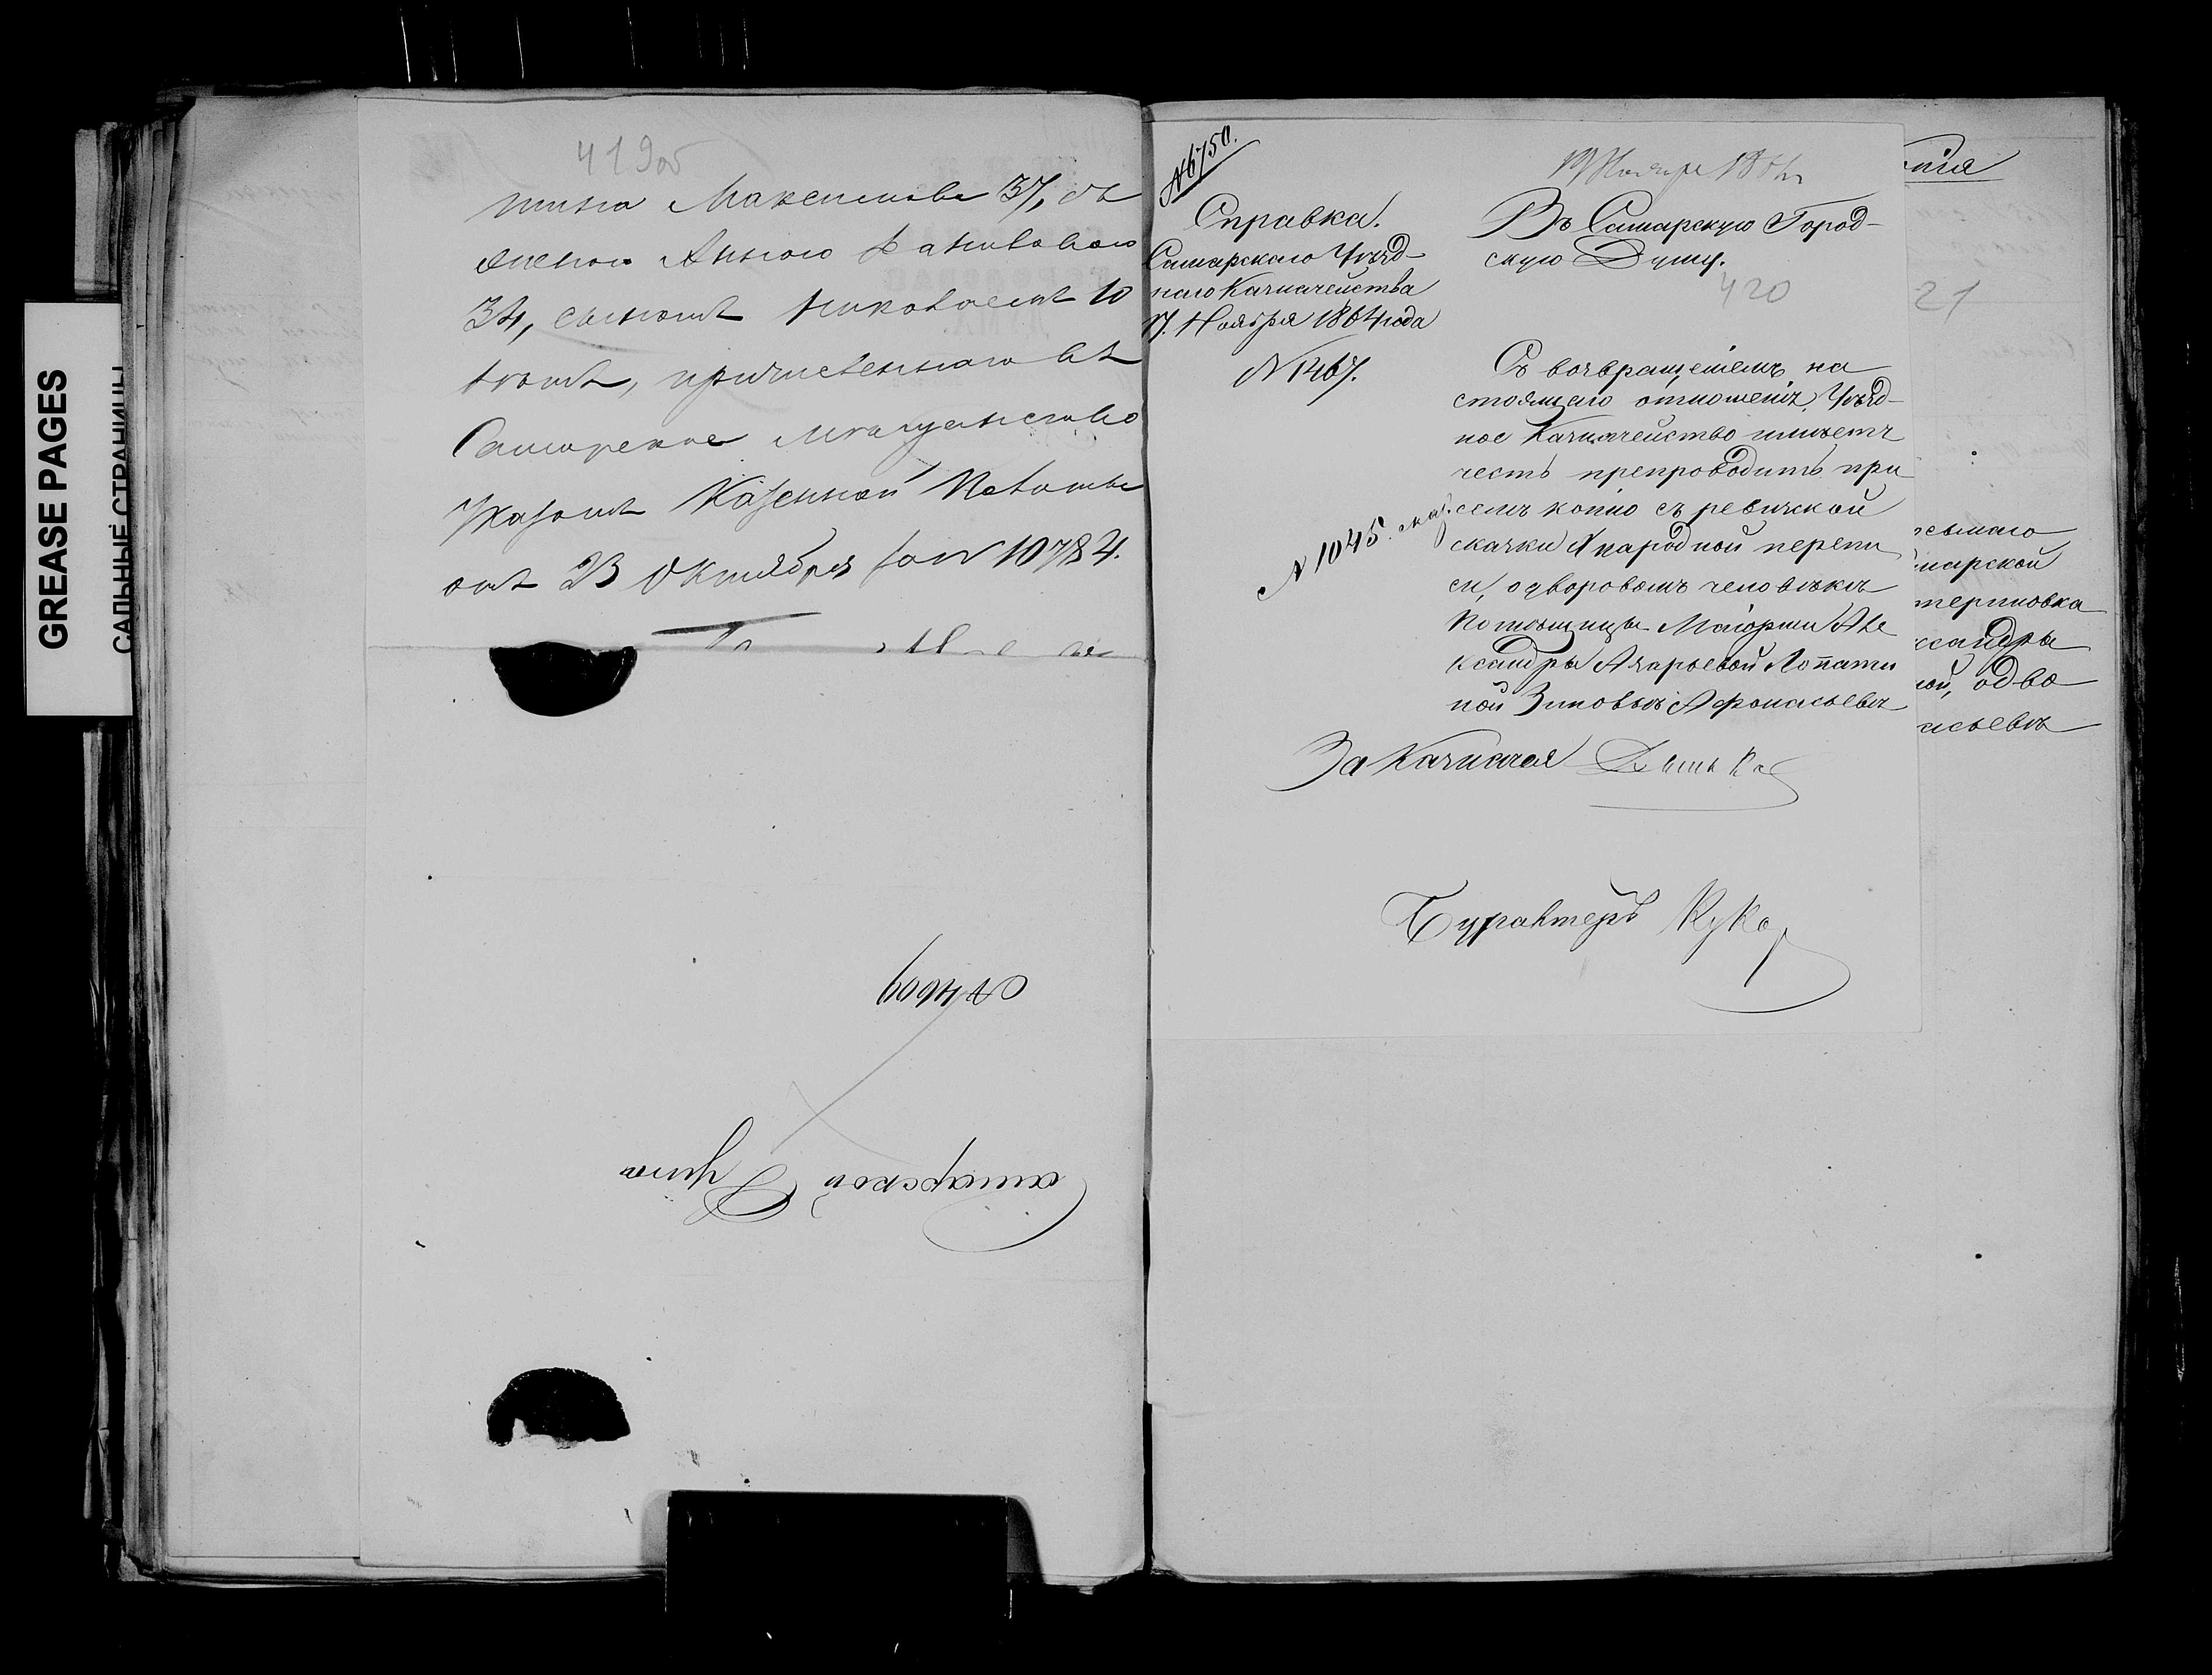 GREASE PAGES
САЛЬНЫЕ СТРАНИЦЫ
419об
тина Максимова 37, съ
женою Анною
34, сыномъ Николаемъ 10
лѣтъ, причисленнаго въ
Самарское мѣщанство
Указомъ Казенной Палаты
отъ 23 Октября за № 10784.
№ 4609
Самарской Думы
№ 6750.
Справка.
Самарскаго Уѣзд-
наго Казначейства
17. Ноября 1864 года
№ 1467.
№ 1045. сказ.
19 Ноября 1864
Въ Самарскую Город-
скую Думу.
420
Съ возвращеніемъ на
стоящаго отношенія, Уѣзд-
ное Казначейство имѣетъ
честь препроводить при
семъ копію съ ревизской
сказки X народной перепи
си, о дворовомъ человѣкѣ
Помѣщицы Маіорши Але
ксандры Азарьевой Лопати
ной Зиновьѣ Афонасьевѣ
За Казначея
Бухгалтеръ
пія
21
марской
териновка
ксандры
ной, о дво
асьевѣ